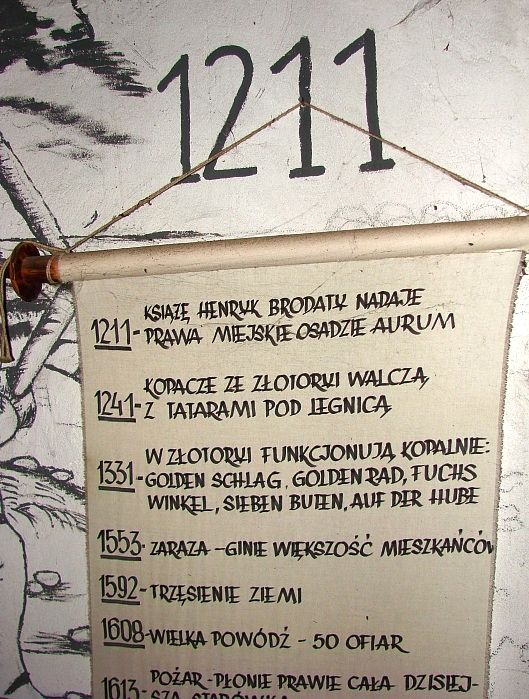 1211
1211- KSIĄŻĘ HENRYK BRODATY NADAJE
PRAWA MIEJSKIE OSADZIE AURUM
1241- KOPACZE ZE ZŁOTORYI WALCZĄ
Z TATARAMI POD LEGNICĄ
1331- W ZŁOTORYI FUNKCJONUJĄ KOPALNIE:
GOLDEN SCHLAG, GOLDEN RAD, FUCHS
WINKEL, SIEBEN BUEN, AUF DER HUBE
1553- ZARAZA - GINIE WIĘKSZOŚĆ MIESZKAŃCÓW
1592- TRZĘSIENIE ZIEMI
1608- WIELKA POWÓDŹ - 50 OFIAR
1613- POŻAR - PŁONIE PRAWIE CAŁA DZISIEJ-
SZA STARÓWKA